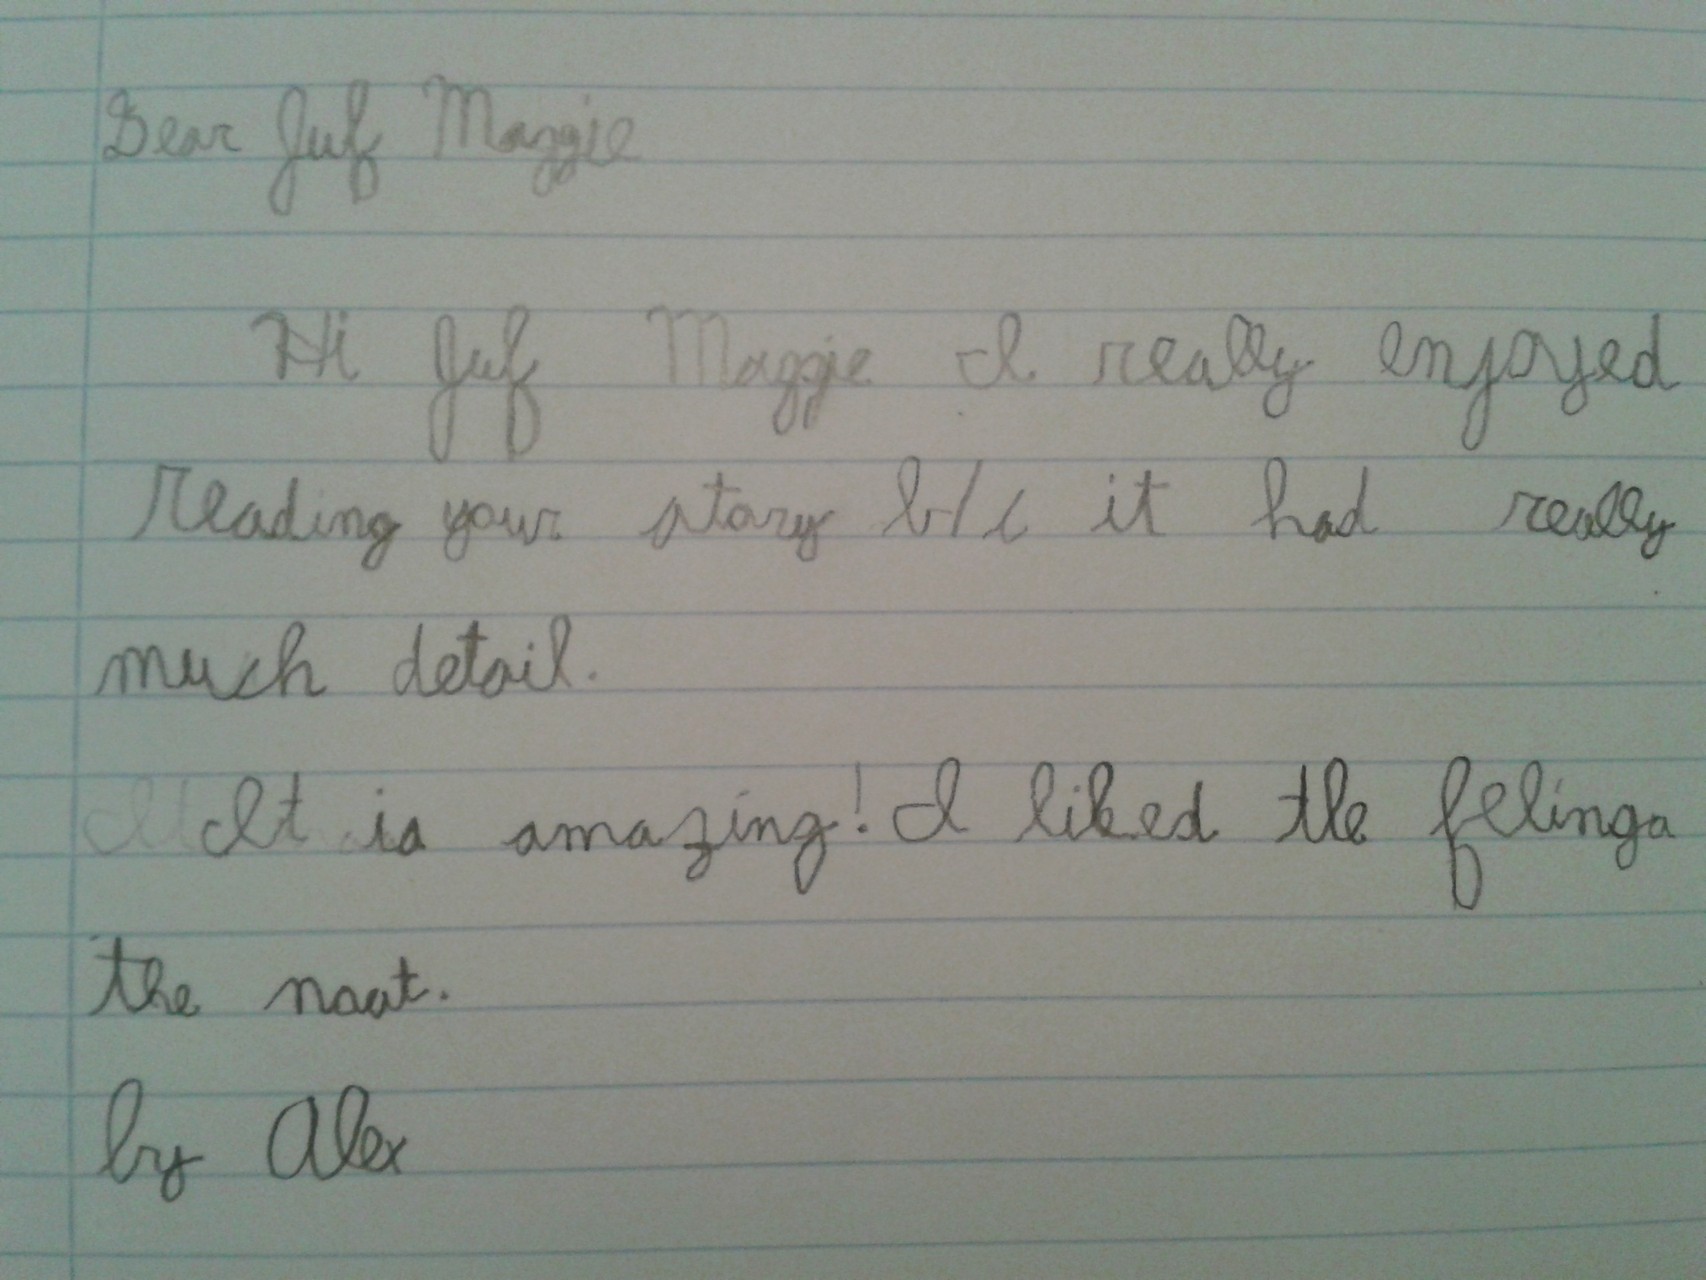 Dear Juf Maggie
Hi Juf Maggie I really enjoyed
reading your story b/c it had really
much detail.
It is amazing! I liked the felings
the most.
by Alex